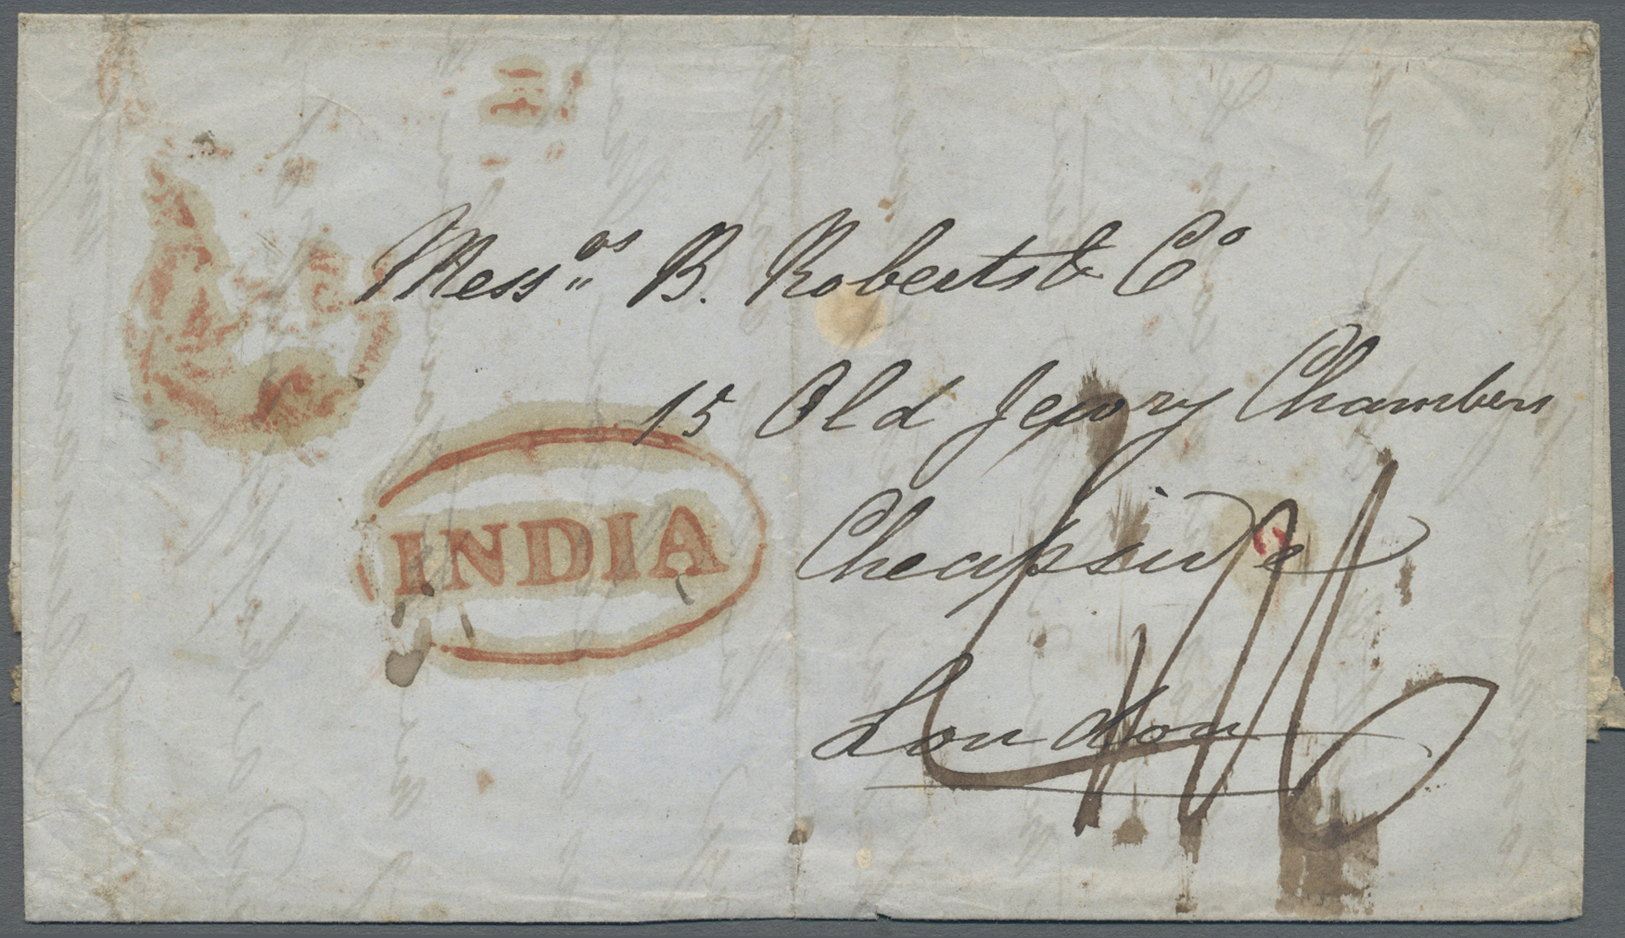 Mess.rs B. Roberts & Co
15 Old Jewry Chambers
INDIA
Cheapside
London